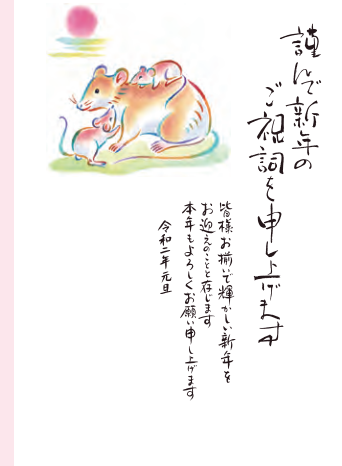 謹んで新年の
ご祝詞を申し上げます
皆様お揃いで輝かしい新年を
お迎えのことと存じます
本年もよろしくお願い申し上げます
令和二年元旦